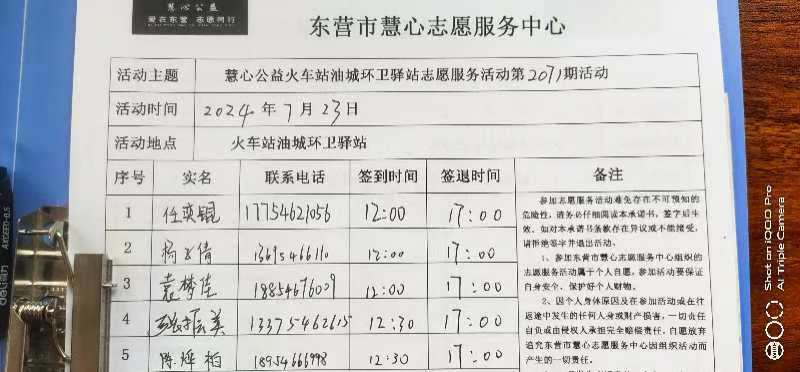 慧心公益
爱在东营 志愿同行
东营市慧心志愿服务中心
活动主题 慧心公益火车站油城环卫驿站志愿服务活动第2071期活动
活动时间 2024年7月23日
活动地点 火车站油城环卫驿站
序号 实名 联系电话 签到时间 签退时间 备注
1 任奕锟 17754621056 12:00 17:00
2 杨 倩 13695466110 12:00 17:00
3 袁梦佳 18854676009 12:00 17:00
4 美 13375462615 12:30 17:00
5 陈烨柏 18954666998 12:30 17:00
参加志愿服务活动难免存在不可预知的
危险性，请务必仔细阅读本承诺书，签字后生
效。如对本承诺书条款存在异议或不能接受，
请拒绝签字并退出活动。
1、参加东营市慧心志愿服务中心组织的
志愿服务活动属于个人自愿。参加活动要保证
自身安全、保护好个人财物。
2、因个人身体原因及在参加活动或在往
返途中发生的任何人身或财产损害，一切责任
自负或由侵权人承担完全赔偿责任。自愿放弃
追究东营市慧心志愿服务中心因组织活动而
产生的一切责任。
deli得力
AXCEED-0.5
Shot on iQOO Pro
AI Triple Camera